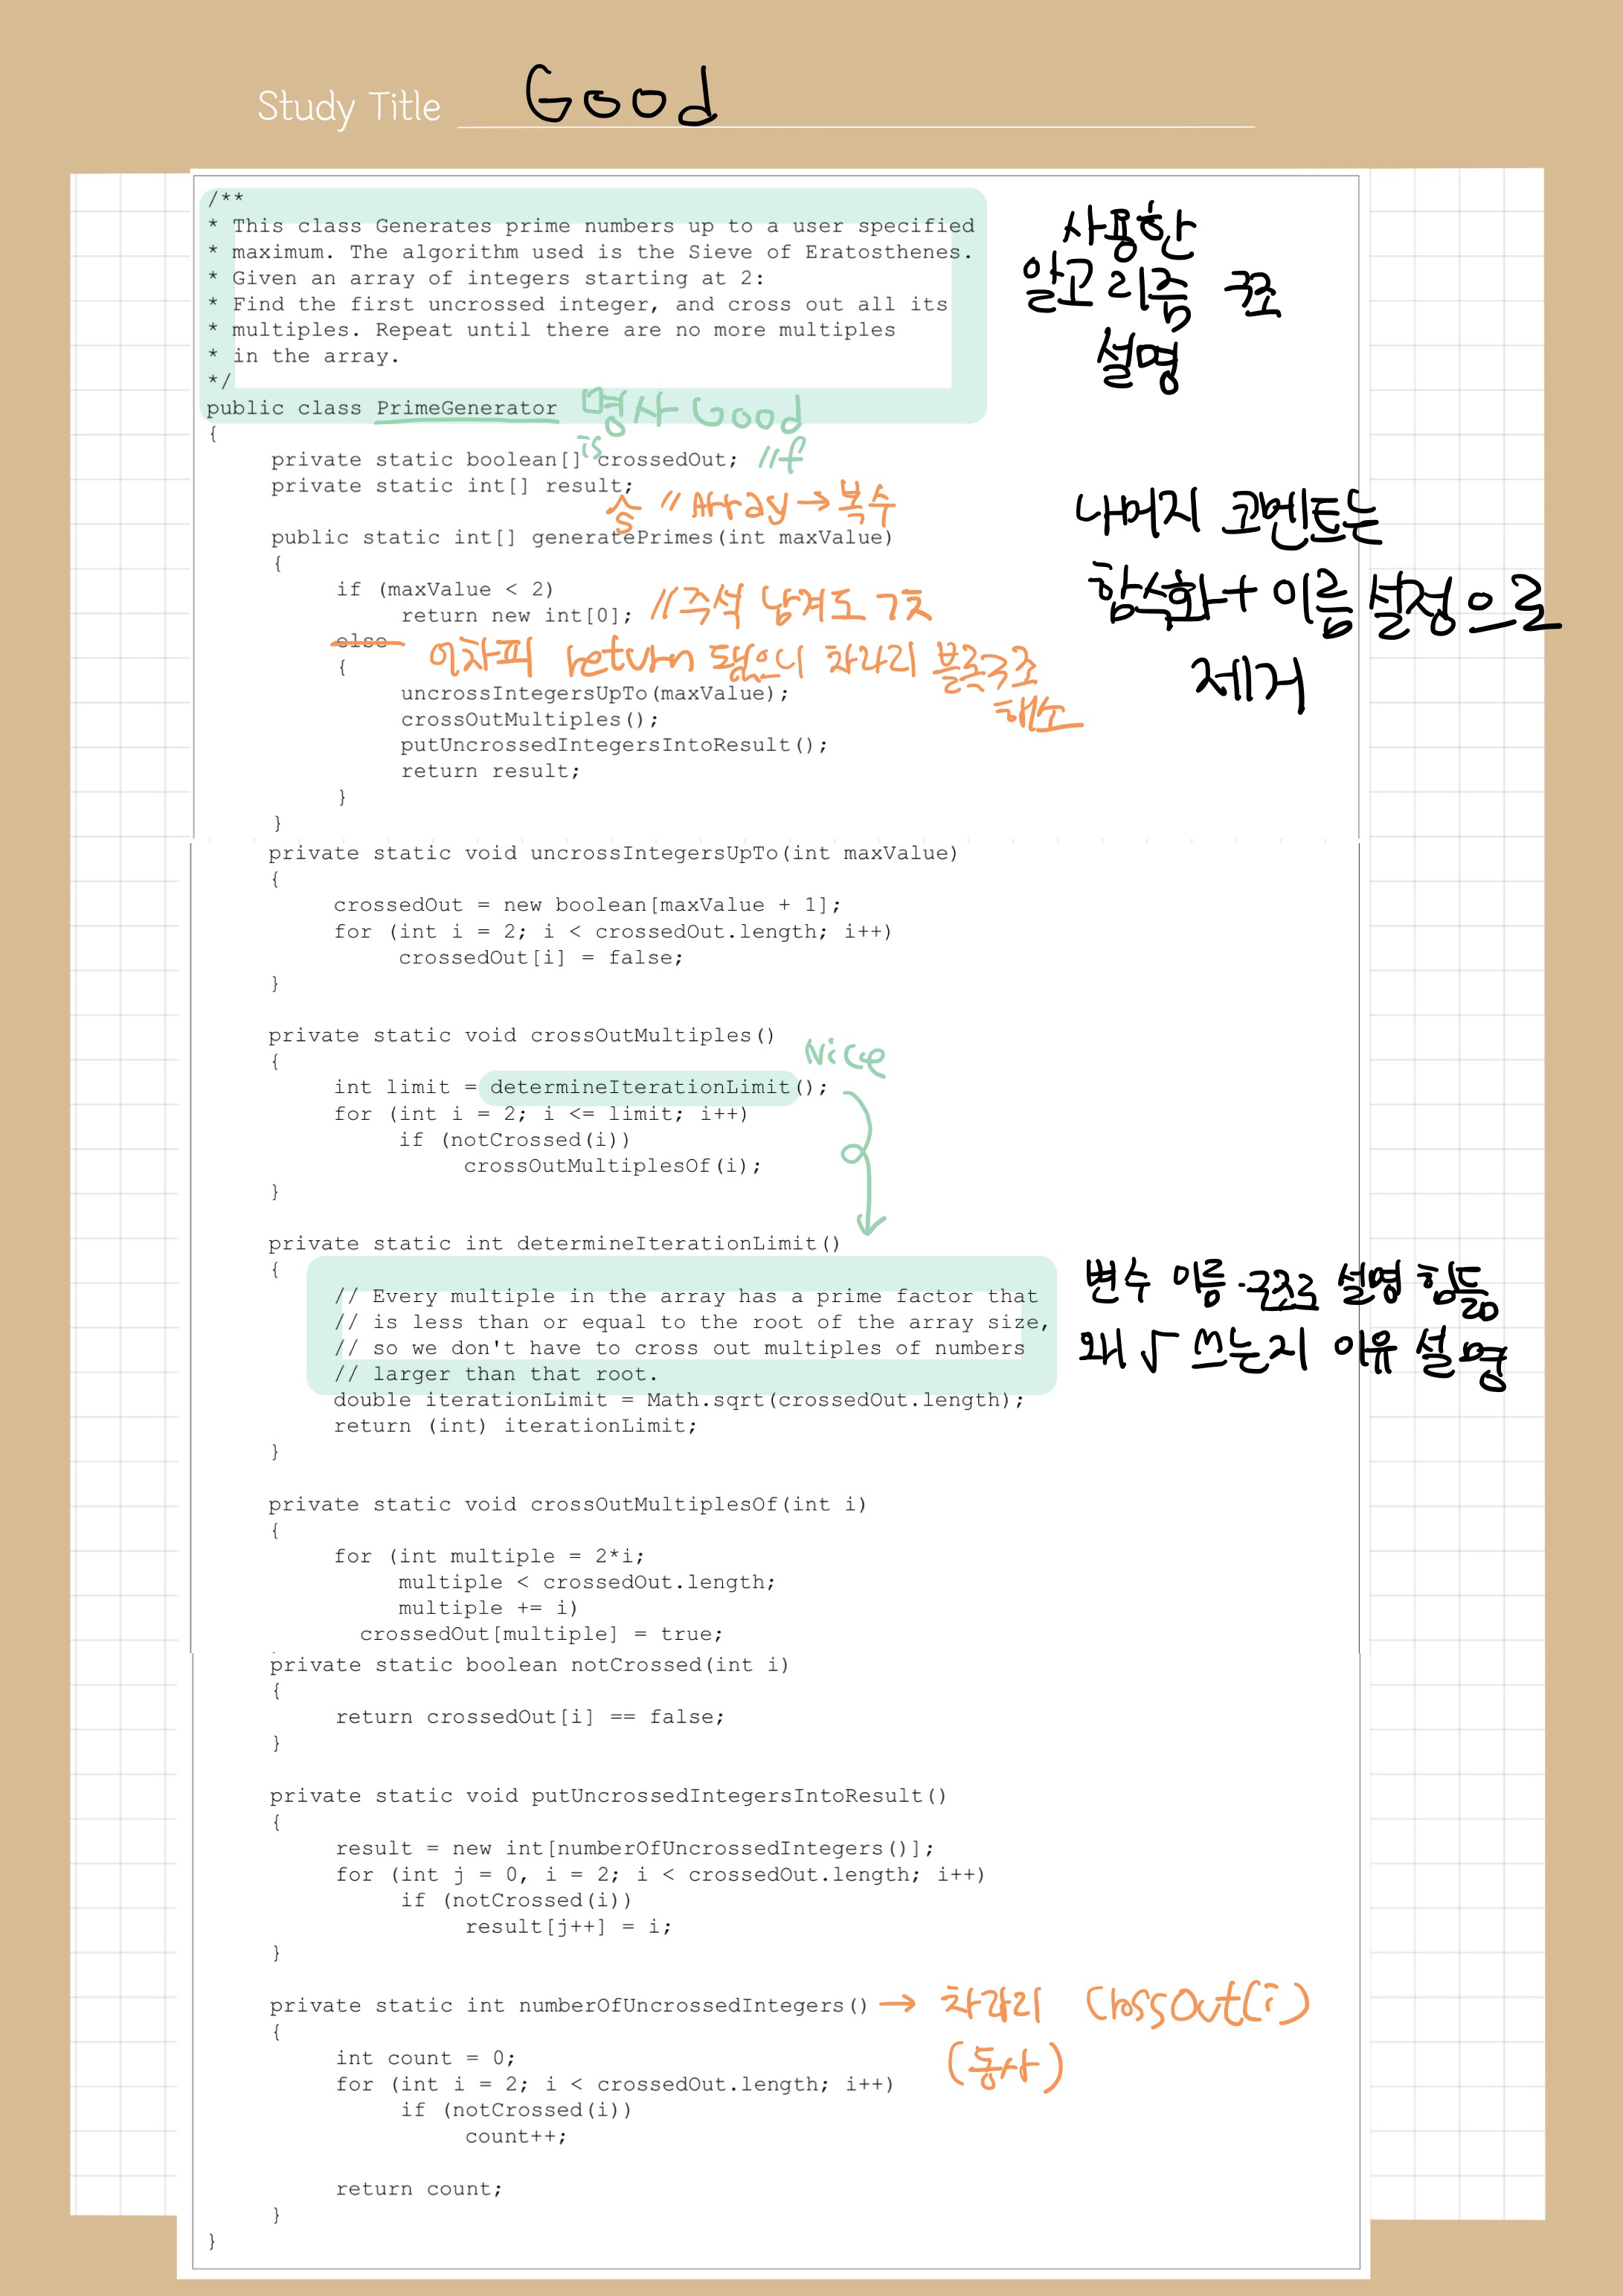 Study Title Good
/**
* This class Generates prime numbers up to a user specified
* maximum. The algorithm used is the Sieve of Eratosthenes.
* Given an array of integers starting at 2:
* Find the first uncrossed integer, and cross out all its
* multiples. Repeat until there are no more multiples
* in the array.
*/
사용한
알고리즘 구조
설명
public class PrimeGenerator 명사 Good
{
is
private static boolean[] crossedOut; //f
private static int[] result;
s // Array → 복수
나머지 코멘트는
함수화 + 이름 설정으로
제거
public static int[] generatePrimes(int maxValue)
{
if (maxValue < 2)
return new int[0]; // 주석 남겨도 굿
else
어차피 return 됐으니 차라리 블록구조
해소
{
uncrossIntegersUpTo(maxValue);
crossOutMultiples();
putUncrossedIntegersIntoResult();
return result;
}
}
private static void uncrossIntegersUpTo(int maxValue)
{
crossedOut = new boolean[maxValue + 1];
for (int i = 2; i < crossedOut.length; i++)
crossedOut[i] = false;
}
private static void crossOutMultiples()
Nice
{
int limit = determineIterationLimit();
for (int i = 2; i <= limit; i++)
if (notCrossed(i))
crossOutMultiplesOf(i);
}
private static int determineIterationLimit()
{
// Every multiple in the array has a prime factor that
// is less than or equal to the root of the array size,
// so we don't have to cross out multiples of numbers
// larger than that root.
변수 이름·구조로 설명 힘듦
왜 √ 쓰는지 이유 설명
double iterationLimit = Math.sqrt(crossedOut.length);
return (int) iterationLimit;
}
private static void crossOutMultiplesOf(int i)
{
for (int multiple = 2*i;
multiple < crossedOut.length;
multiple += i)
crossedOut[multiple] = true;
private static boolean notCrossed(int i)
{
return crossedOut[i] == false;
}
private static void putUncrossedIntegersIntoResult()
{
result = new int[numberOfUncrossedIntegers()];
for (int j = 0, i = 2; i < crossedOut.length; i++)
if (notCrossed(i))
result[j++] = i;
}
private static int numberOfUncrossedIntegers() → 차라리 CrossOut(i)
(동사)
{
int count = 0;
for (int i = 2; i < crossedOut.length; i++)
if (notCrossed(i))
count++;
return count;
}
}